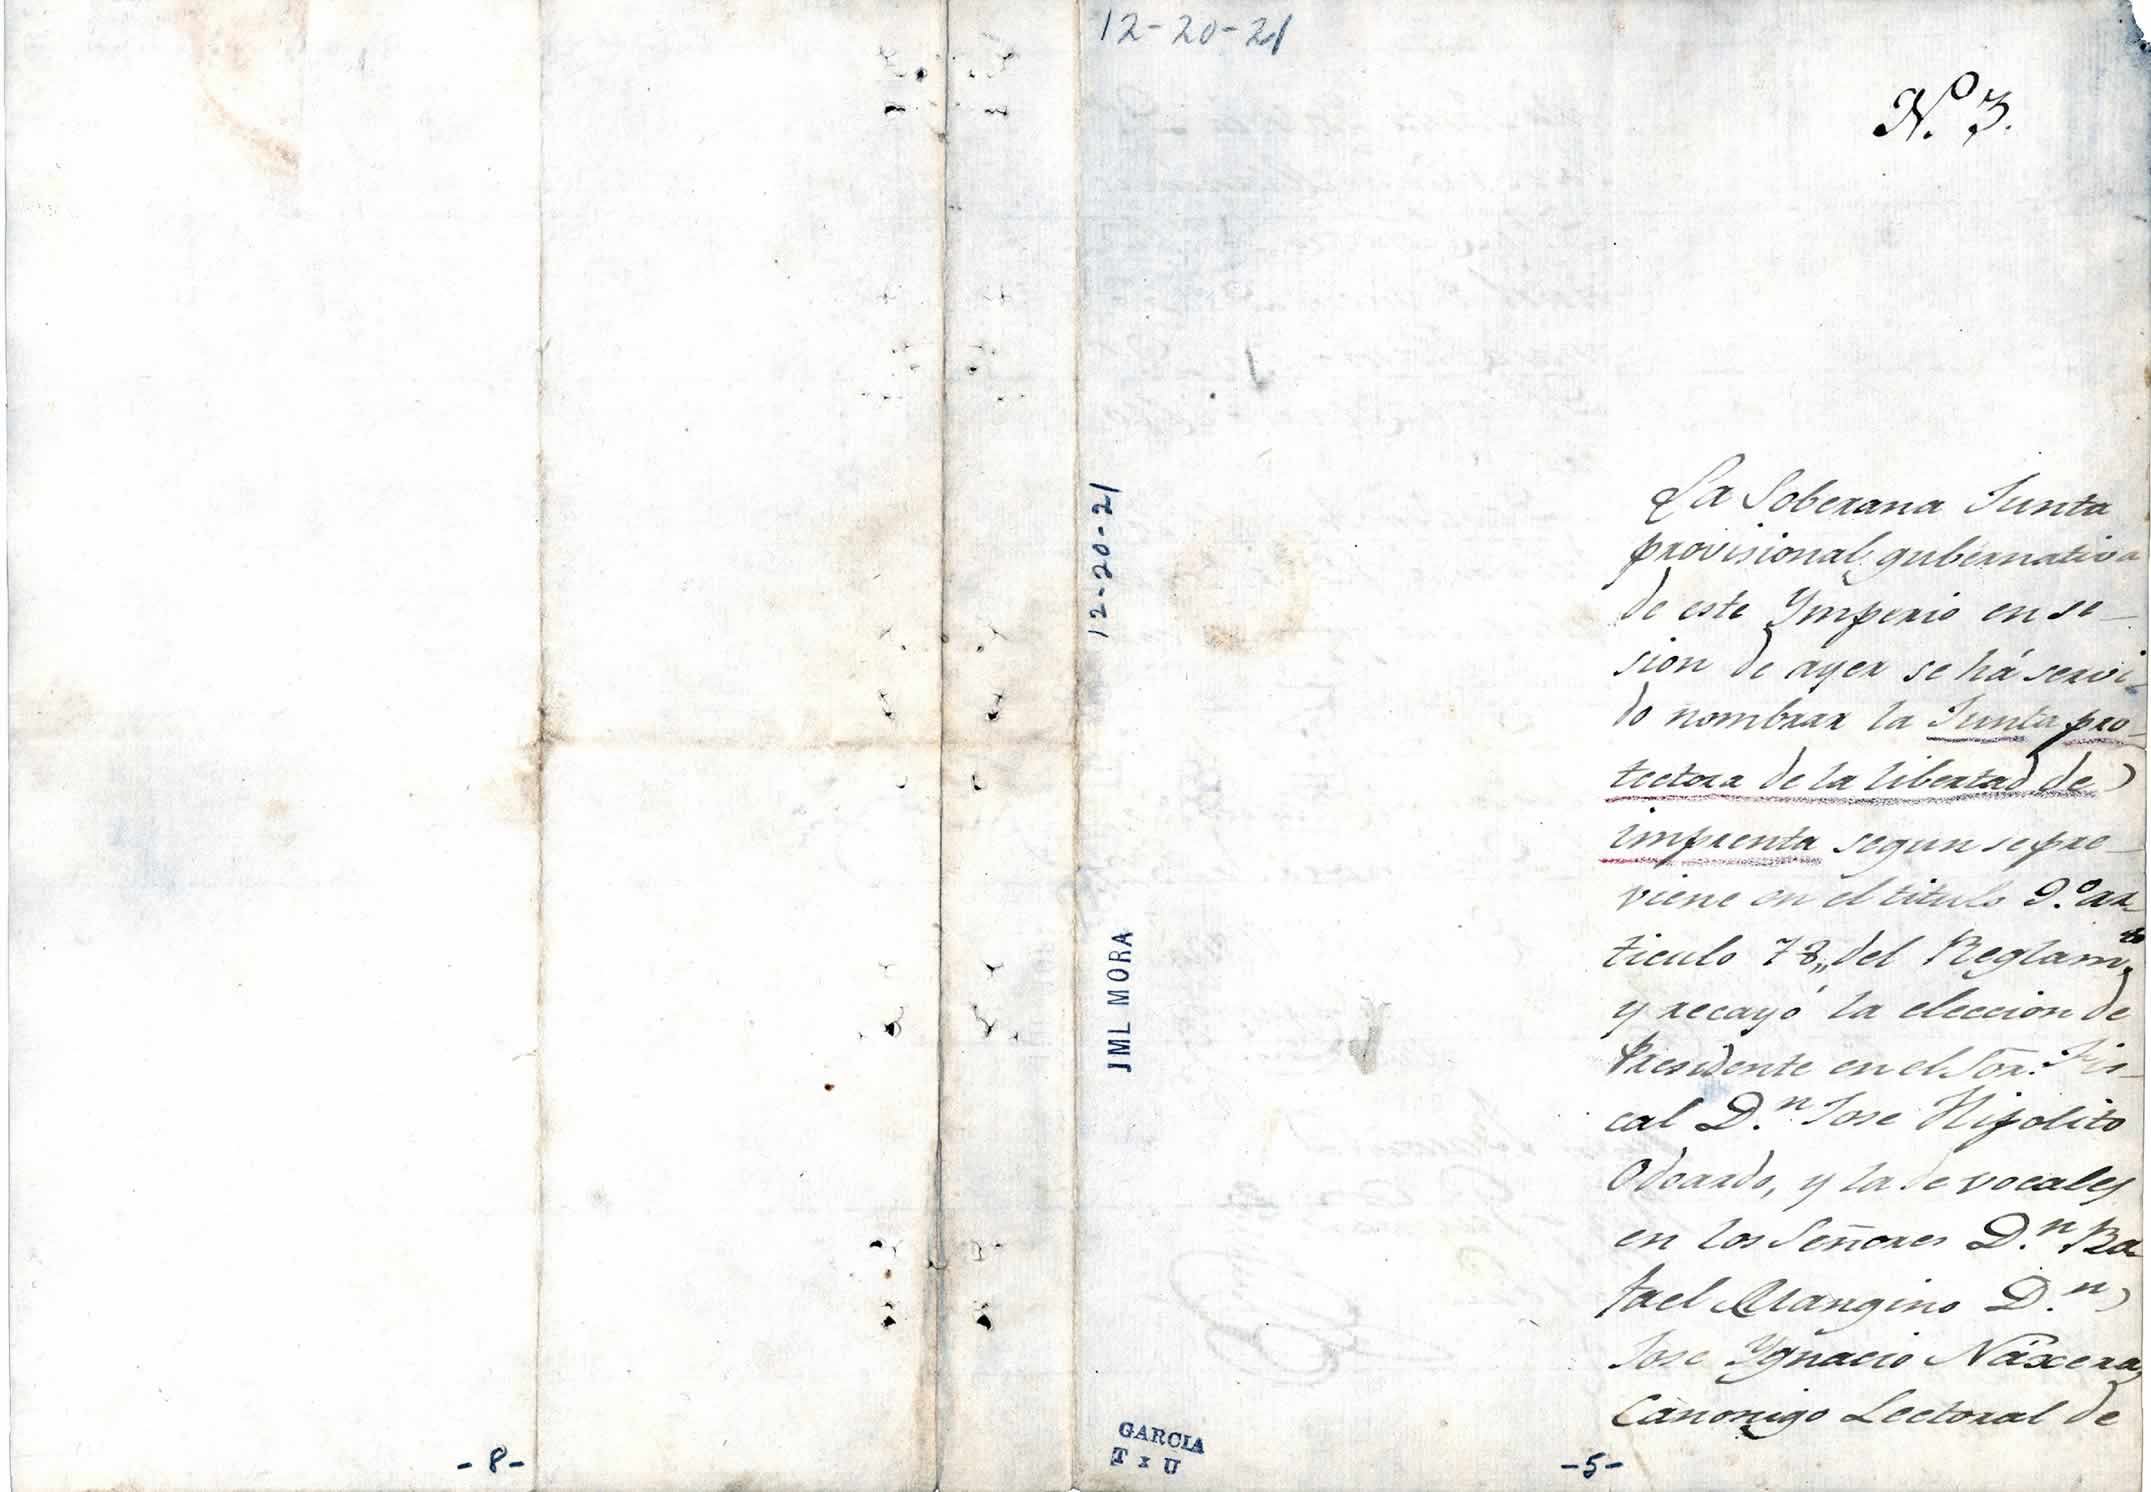 12-20-21
Nº 3.
La Soberana Junta
provisional gubernativa
de este Ymperio en se-
sion de ayer se há servi-
do nombrar la Junta pro-
tectora de la libertad de
imprenta segun se pre-
viene en el titulo 9.º ar-
ticulo 78,, del Reglam.to
y recayó la eleccion de
Presidente en el Sor. Fis-
cal D.n Jose Hipolito
Odoardo, y la de vocales
en los Señores D.n Ra-
fael Mangino D.n
Jose Ygnacio Náxera,
Canonigo Lectoral de
12-20-21
JML MORA
GARCIA
T x U
-5-
-8-